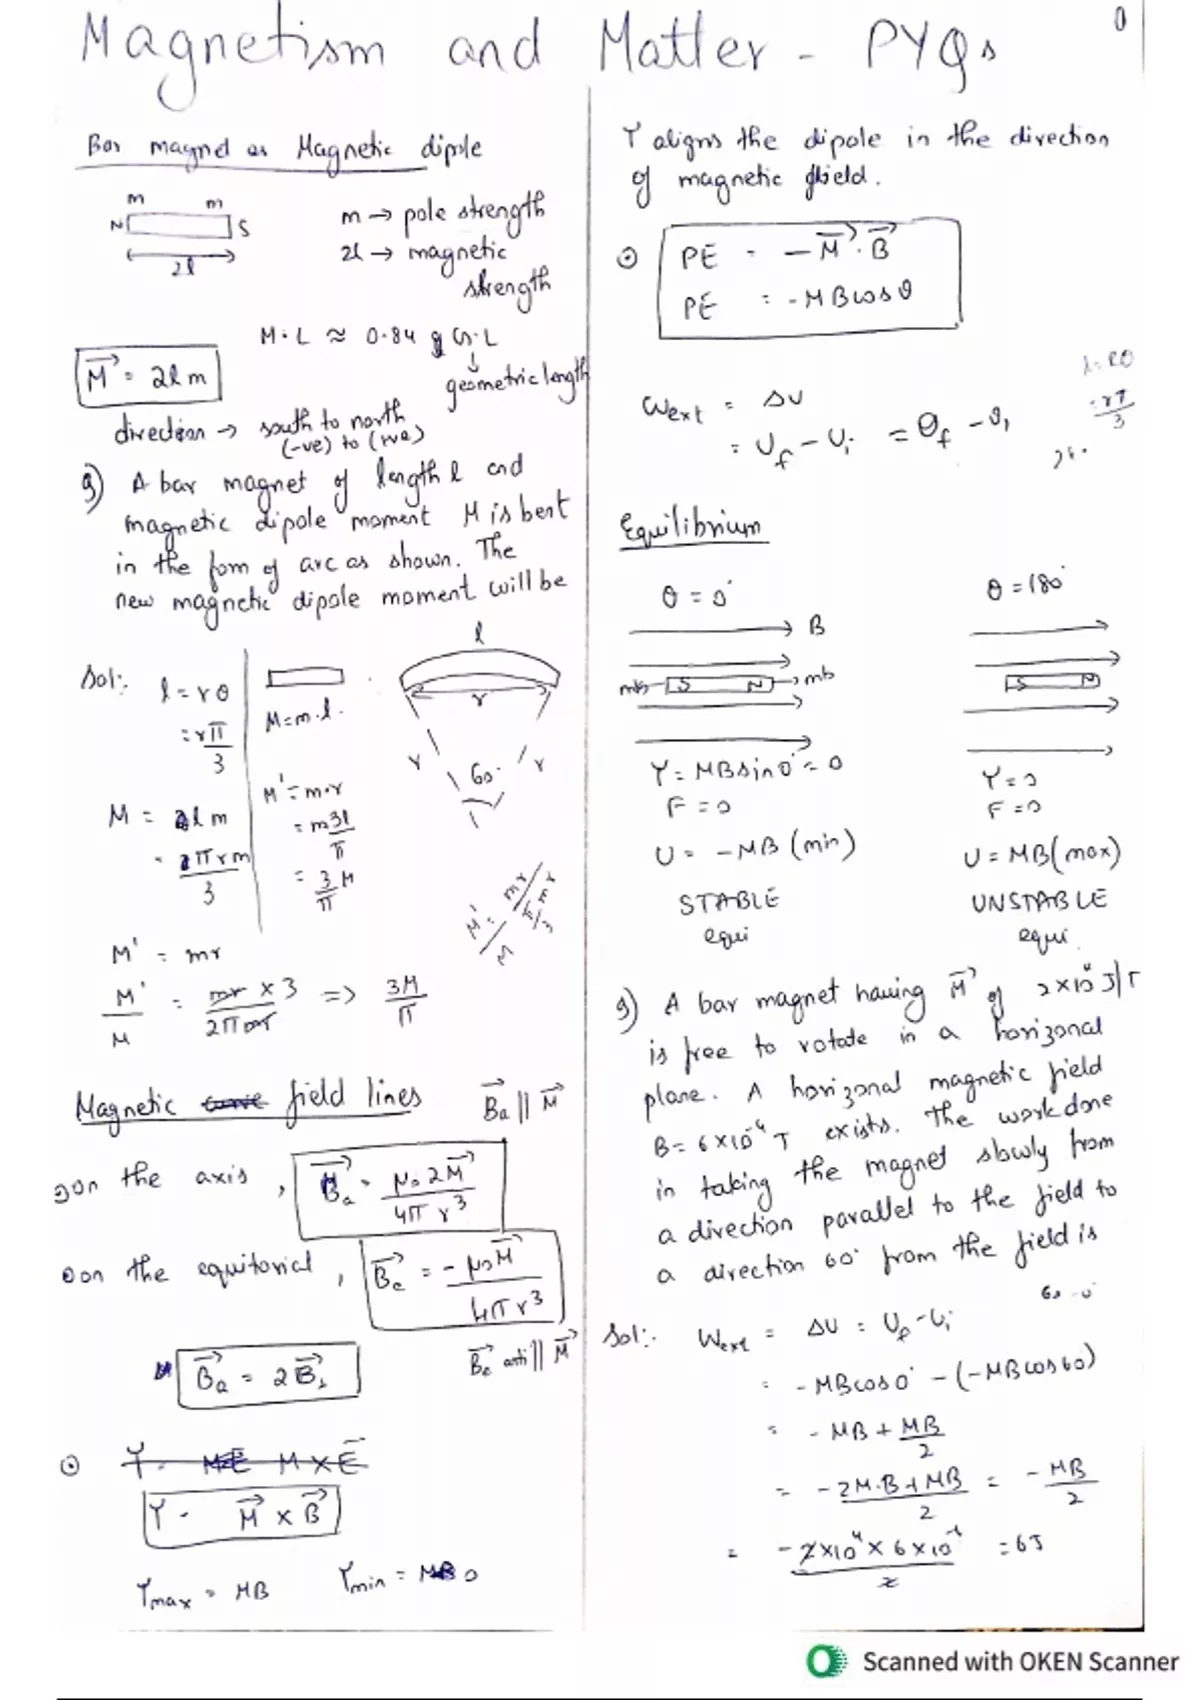 Magnetism and Matter - PYQs
Bar magnet as Magnetic dipole
m m
N S
2l
m → pole strength
2l → magnetic
strength
M.L ≈ 0.84 G.L
↓
geometric length
M⃗ = 2lm
direction → south to north
(-ve) to (+ve)
Q) A bar magnet of length l and
magnetic dipole moment M is bent
in the form of arc as shown. The
new magnetic dipole moment will be
Sol:.
l = rθ
= rπ/3
M = lm
= πrm/3
M = m.l.
M' = m.r
= m3l/π
= 3/π M
l
r
r 60° r
M'/M = mr/(π/3 mr)
M' = mr
M'/M = mr × 3/2πmr => 3M/π
Magnetic field lines
B⃗a || M⃗
on the axis, B⃗a = μ0 2M⃗/4π r³
⊙ on the equitorial, B⃗e = -μ0M⃗/4πr³
B⃗e anti || M⃗
B⃗a = 2B⃗
⊙
τ = M⃗ × B⃗
τmax = MB τmin = 0
τ aligns the dipole in the direction
of magnetic field.
⊙ PE = -M⃗.B⃗
PE = -MBcosθ
Wext = ΔU
= Uf - Ui = θf - θi
l = rθ
= rπ/3
Equilibrium
θ = 0°
B
mb S N mb
τ = MBsin0° = 0
F = 0
U = -MB (min)
STABLE
equi
θ = 180°
S N
τ = 0
F = 0
U = MB (max)
UNSTABLE
equi.
Q) A bar magnet having M⃗ of 2×10⁴ J/T
is free to rotate in a horizonal
plane. A horizonal magnetic field
B = 6×10⁻⁴ T exists. The work done
in taking the magnet slowly from
a direction parallel to the field to
a direction 60° from the field is
60 - 0
Sol:. Wext = ΔU = Uf - Ui
= -MBcos0° - (-MBcos60)
= -MB + MB/2
= -2M.B+MB/2 = -MB/2
= -2×10⁴×6×10⁻⁴/2 = 6J
Scanned with OKEN Scanner